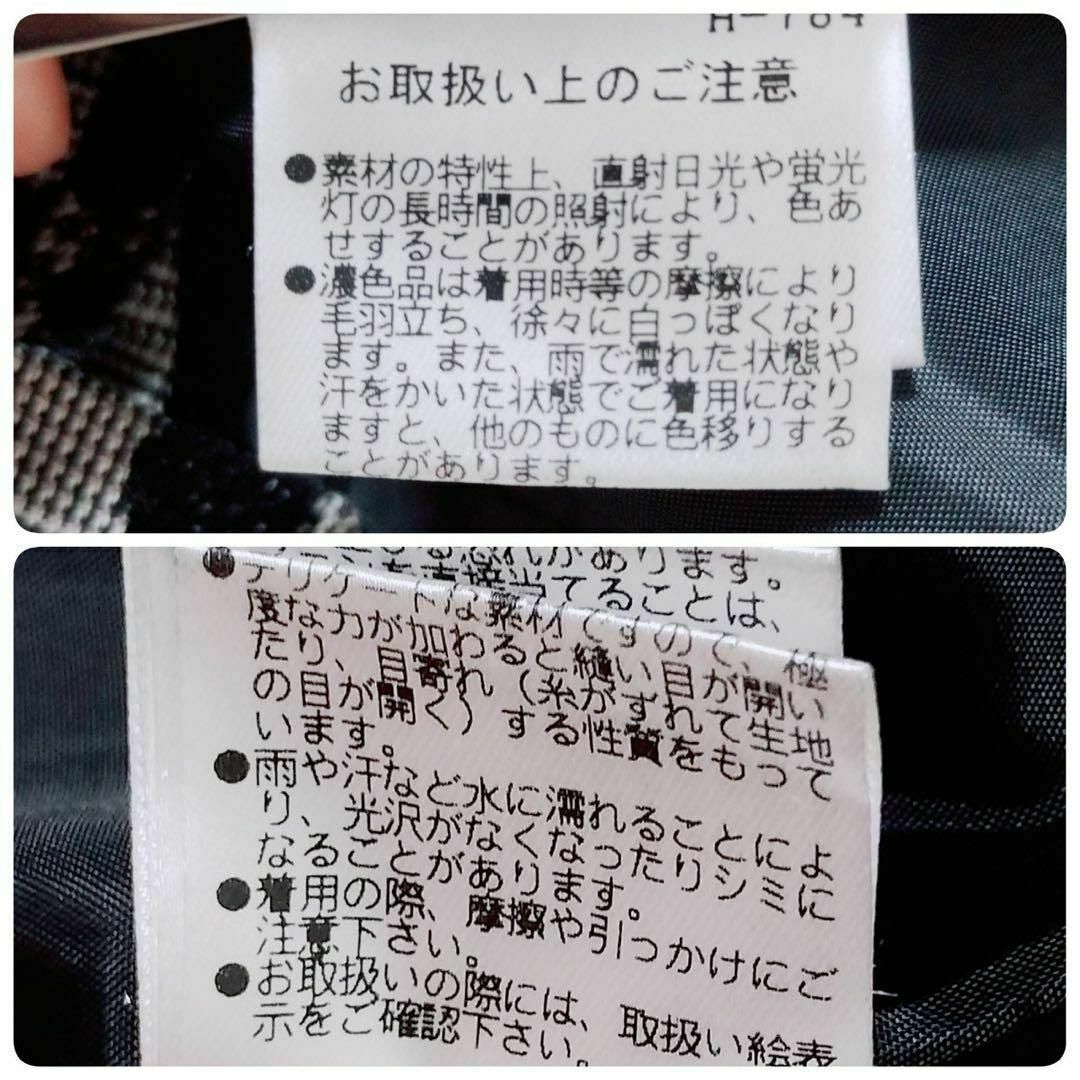 H-784
お取扱い上のご注意
●素材の特性上、直射日光や蛍光
灯の長時間の照射により、色あ
せすることがあります。
●濃色品は着用時等の摩擦により
毛羽立ち、徐々に白っぽくなり
ます。また、雨で濡れた状態や
汗をかいた状態でご着用になり
ますと、他のものに色移りする
ことがあります。
恐れがあります。
を直接当てることは、
●デリケートな素材ですので、極
度な力が加わると縫い目が開い
たり、目寄れ(糸がずれて生地
の目が開く)する性質をもって
います。
●雨や汗など水に濡れることによ
り、光沢がなくなったりシミに
なることがあります。
●着用の際、摩擦や引っかけにご
注意下さい。
●お取扱いの際には、取扱い絵表
示をご確認下さい。